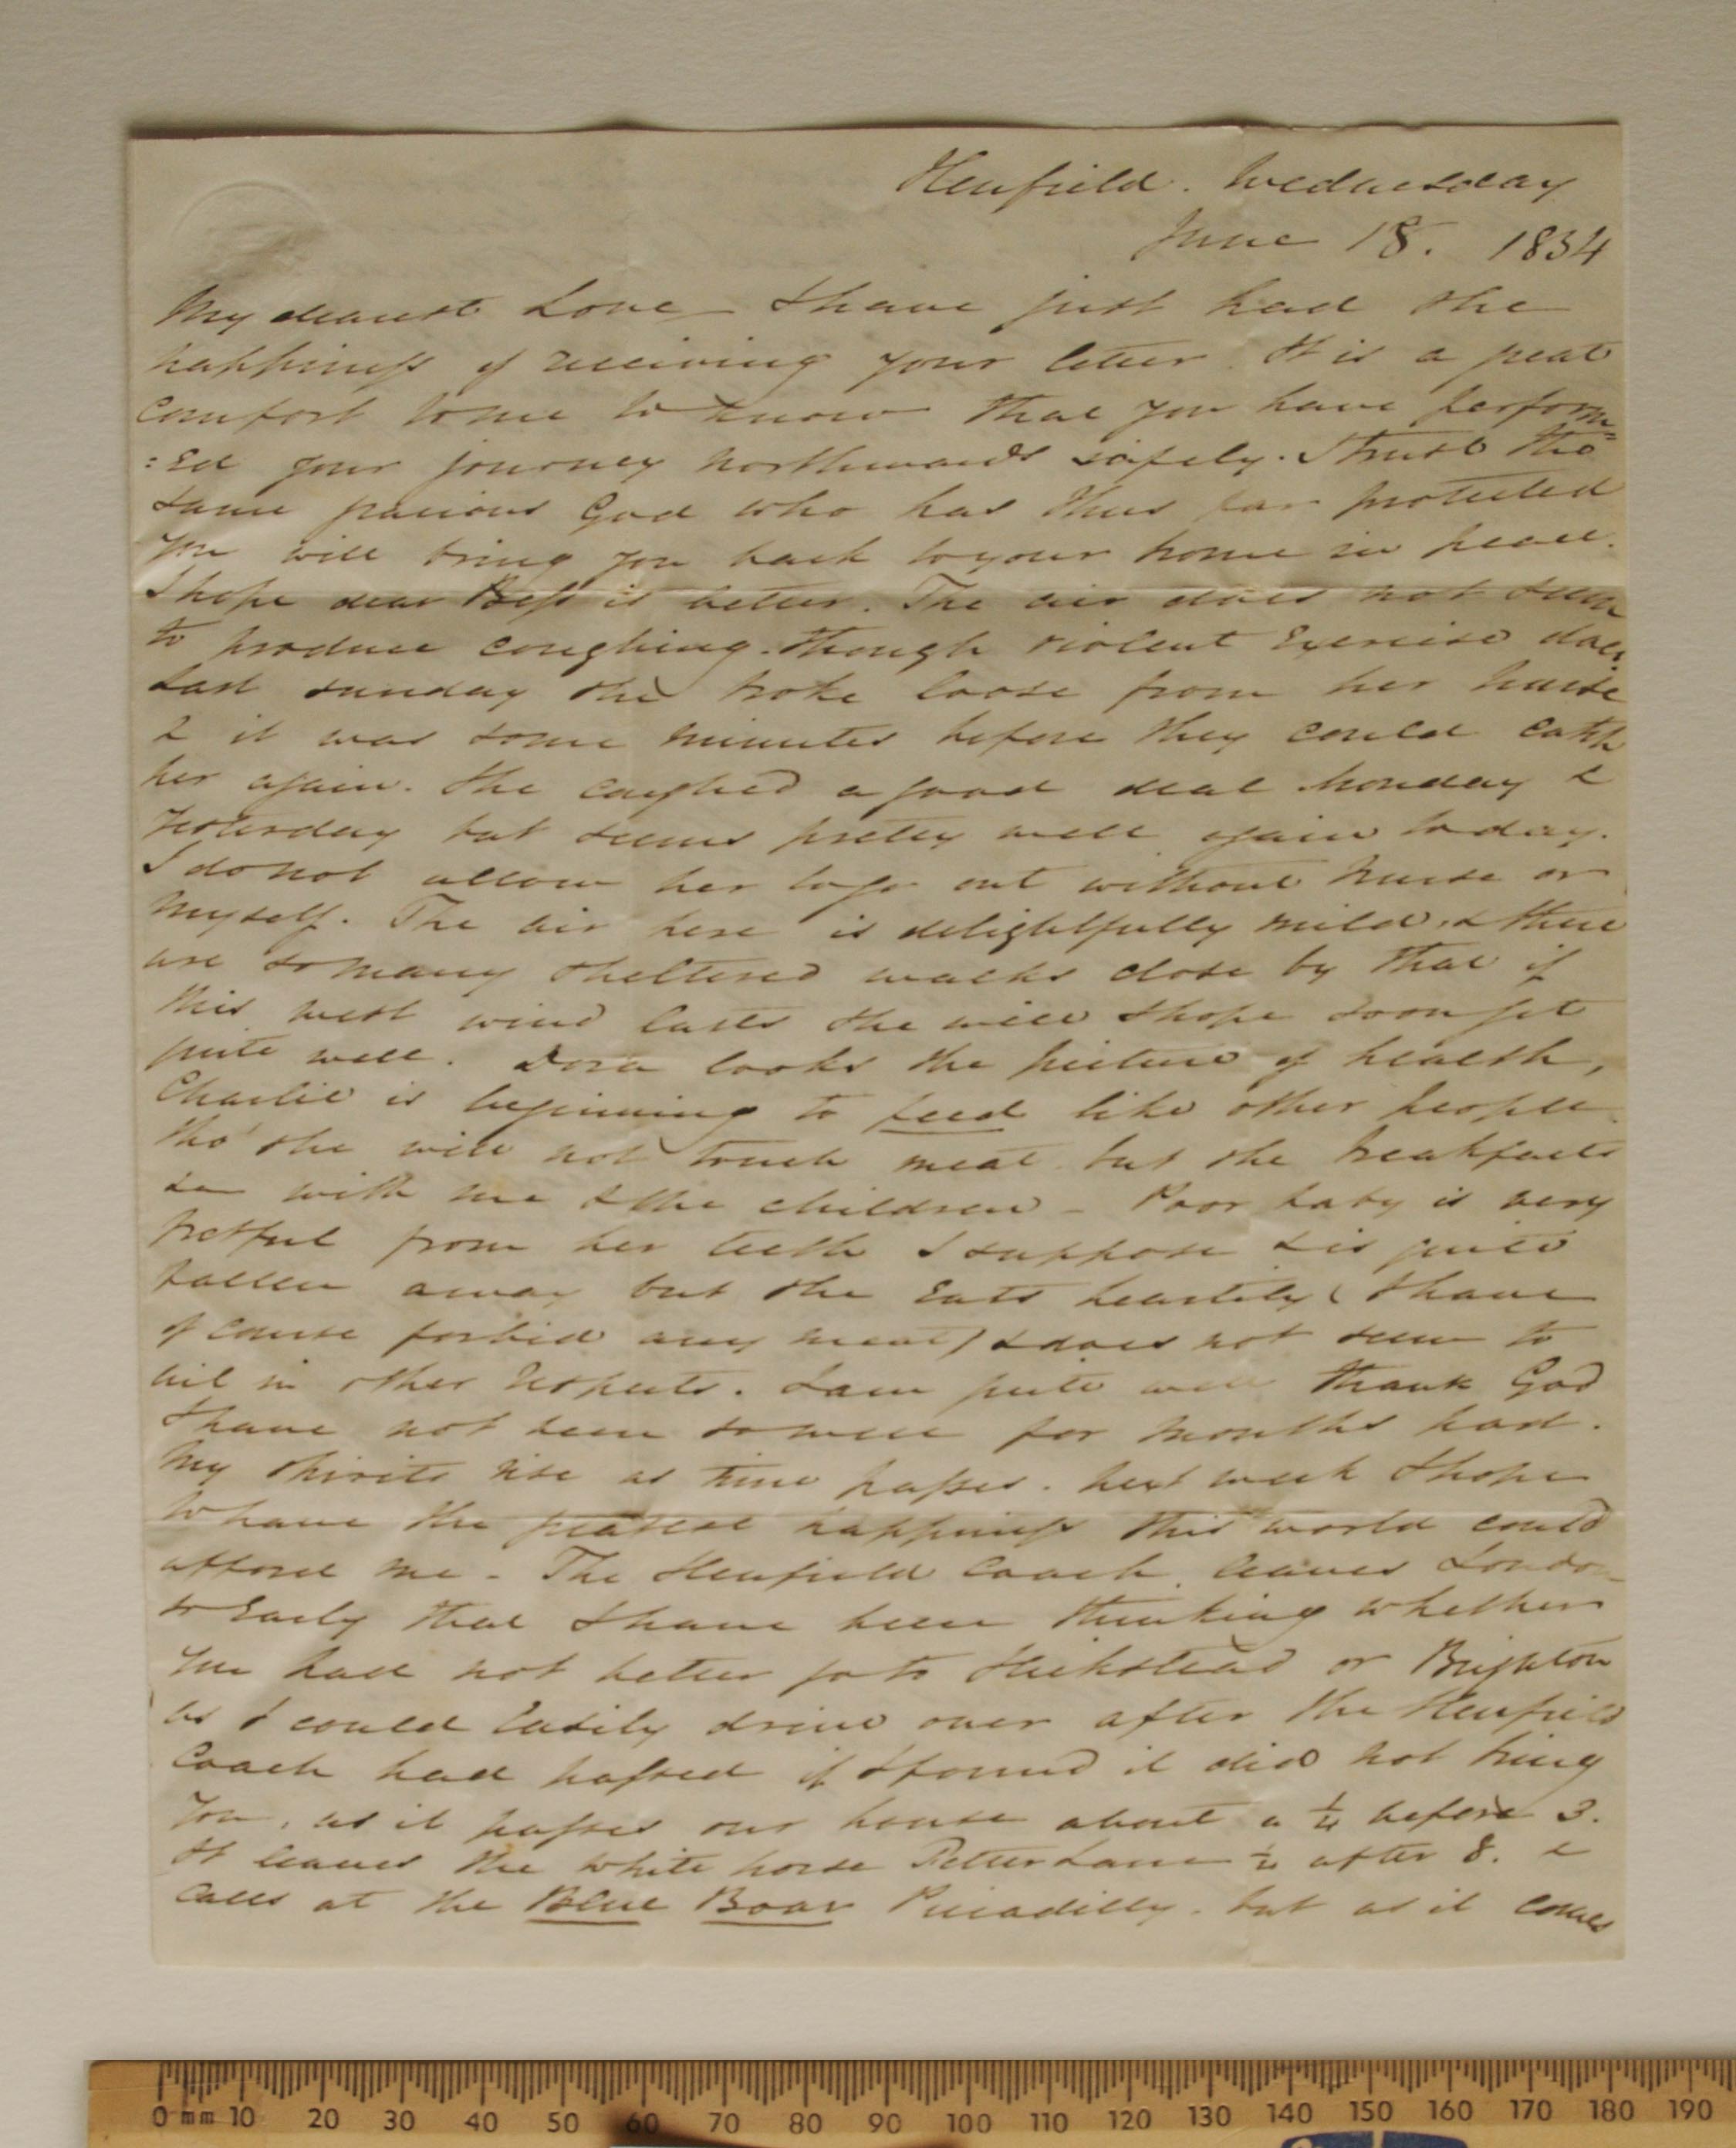 Henfield. Wednesday
June 18. 1834
My dearest Love – I have just had the
happiness of receiving your letter. It is a great
comfort to me to know that you have perform=
:ed your journey northwards safely. I trust the
same gracious God who has thus far protected
you will bring you back to your home in peace.
I hope dear Bess is better. The air does not seem
to produce coughing. though violent Exercise does.
Last sunday she broke loose from her nurse
& it was some minutes before they could catch
her again. She coughed a good deal Monday &
Yesterday but seems pretty well again today.
I do not allow her to go out without nurse or
myself. The air here is delightfully mild, & there
are so many sheltered walks close by that if
this west wind lasts she will I hope soon get
quite well. Dora looks the picture of health,
Charlie is beginning to feed like other people
tho' she will not touch meat but she breakfasts
with me & the children – Poor baby is very
fretful from her teeth I suppose & is quite
fallen away but she Eats heartily (I have
of course forbid any meat) & does not seem to
ail in other respects. I am quite well thank God
I have not been so well for months past.
My spirits rise as time passes. next week I hope
to have the greatest happiness this world could
afford me – The Henfield Coach leaves London
so Early that I have been thinking whether
you had not better go to Hickstead or Brighton
as I could Easily drive over after the Henfield
Coach had passed if I found it did not bring
you, as it passes our house about a ¼ before 3.
It leaves the White horse Fetter Lane ¼ after 8. &
calls at the Blue Boar Piccadilly. but as it comes
0 mm 10 20 30 40 50 60 70 80 90 100 110 120 130 140 150 160 170 180 190